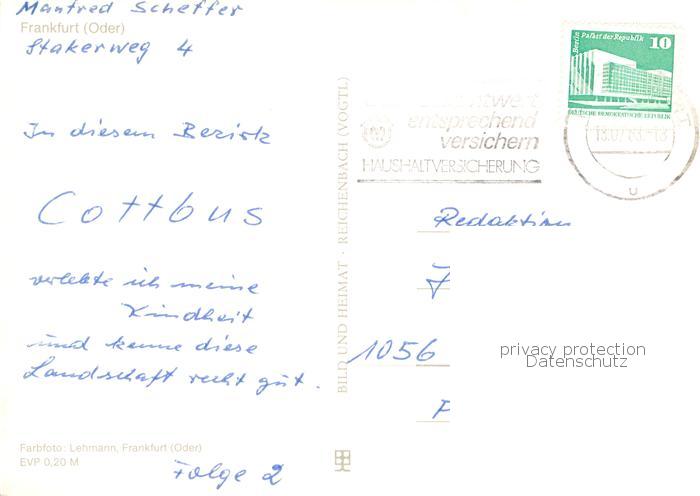 Manfred Scheffer
Frankfurt (Oder)
Stakerweg 4
In diesem Bezirk
Cottbus
verlebte ich meine
Kindheit
und kenne diese
Landschaft recht gut.
Farbfoto: Lehmann, Frankfurt (Oder)
EVP 0,20 M
Folge 2
BILD UND HEIMAT · REICHENBACH (VOGTL)
entsprechend
versichern
HAUSHALTVERSICHERUNG
Berlin Palast der Republik 10
DEUTSCHE DEMOKRATISCHE REPUBLIK
u
Redaktion
1056
privacy protection
Datenschutz